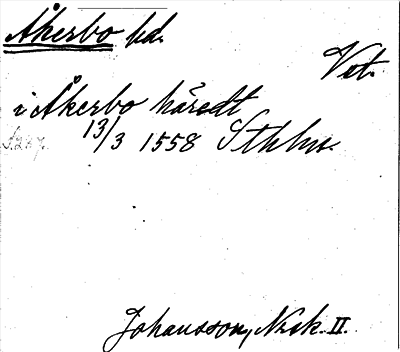 Åkerbo hd.
Vst.
i Åkerbo häredt
13/3 1558 Sthlm.
Johansson, Nsk. II.